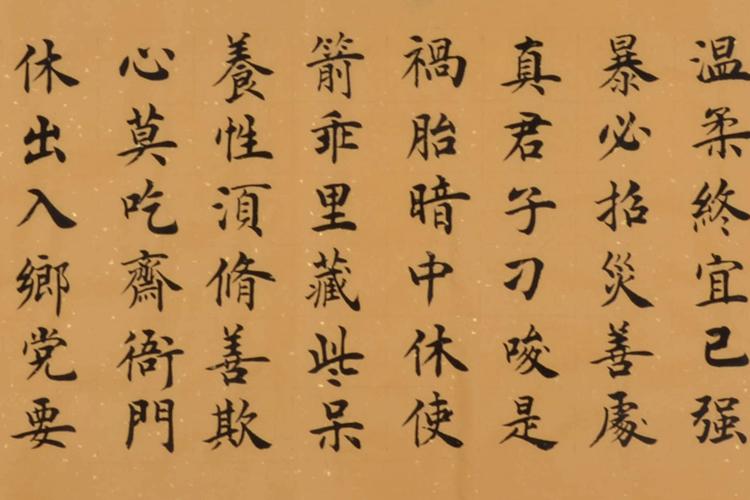 温柔終宜已强
暴必招災善處
真君子刁唆是
禍胎暗中休使
箭乖里藏些呆
養性須脩善欺
心莫吃齋衙門
休出入鄉党要